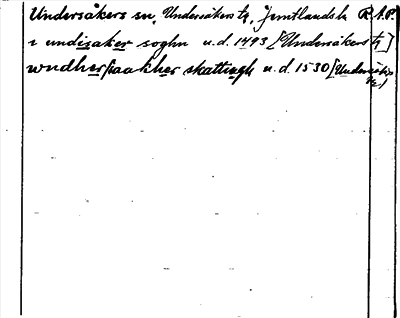 Undersåkers sn, Undersåkers tg, Jämtlands l. R.A.P.
i undisaker soghn u.d. 1493 [Undersåkers tg]
wndhersaakher skattingh u.d. 1530 [Undersåkers tg]